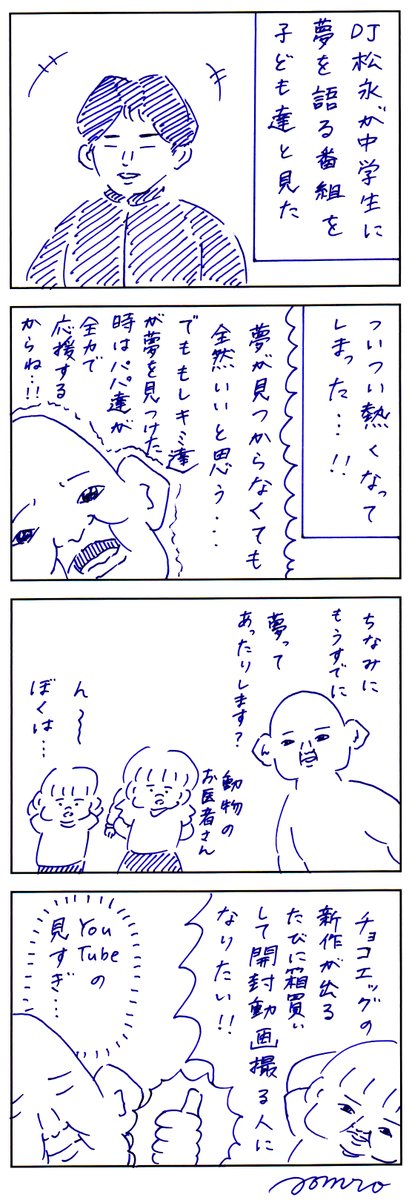 DJ松永が中学生に
夢を語る番組を
子ども達と見た
ついつい熱くなって
しまった…!!
夢が見つからなくても
全然いいと思う…
でももしキミ達
が夢を見つけた
時はパパ達が
全力で
応援する
からね…!!
ちなみに
もうすでに
夢って
あったりします?
動物の
お医者さん
ん〜〜
ぼくは…
チョコエッグの
新作が出る
たびに箱買い
して開封動画撮る人に
なりたい!!
You
Tubeの
見すぎ…